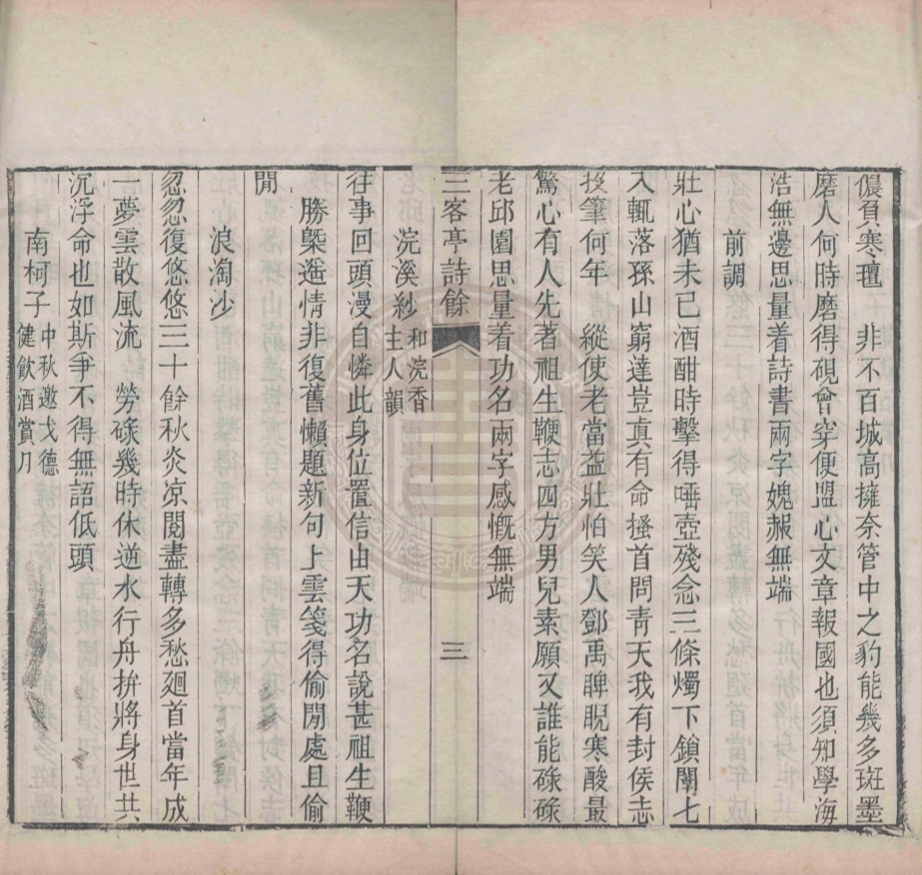 儂負寒氊　非不百城高擁奈管中之豹能幾多斑墨
磨人何時磨得硯會穿便盟心文章報國也須知學海
浩無邊思量着詩書兩字媿赧無端
前調
壯心猶未已酒酣時擊得唾壺殘念三條燭下鎖闈七
入輒落孫山窮達豈真有命搔首問青天我有封侯志
投筆何年　縱使老當益壯怕笑人鄧禹睥睨寒酸最
驚心有人先著祖生鞭志四方男兒素願又誰能碌碌
老邱園思量着功名兩字感慨無端
三客亭詩餘
三
浣溪紗　和浣香
主人韻
往事回頭漫自憐此身位置信由天功名說甚祖生鞭
勝槩逸情非復舊懶題新句上雲箋得偷閒處且偷
閒
浪淘沙
忽忽復悠悠三十餘秋炎凉閱盡轉多愁廻首當年成
一夢雲散風流　勞碌幾時休逆水行舟拚將身世共
沉浮命也如斯爭不得無語低頭
南柯子　中秋邀戈德
健飲酒賞月